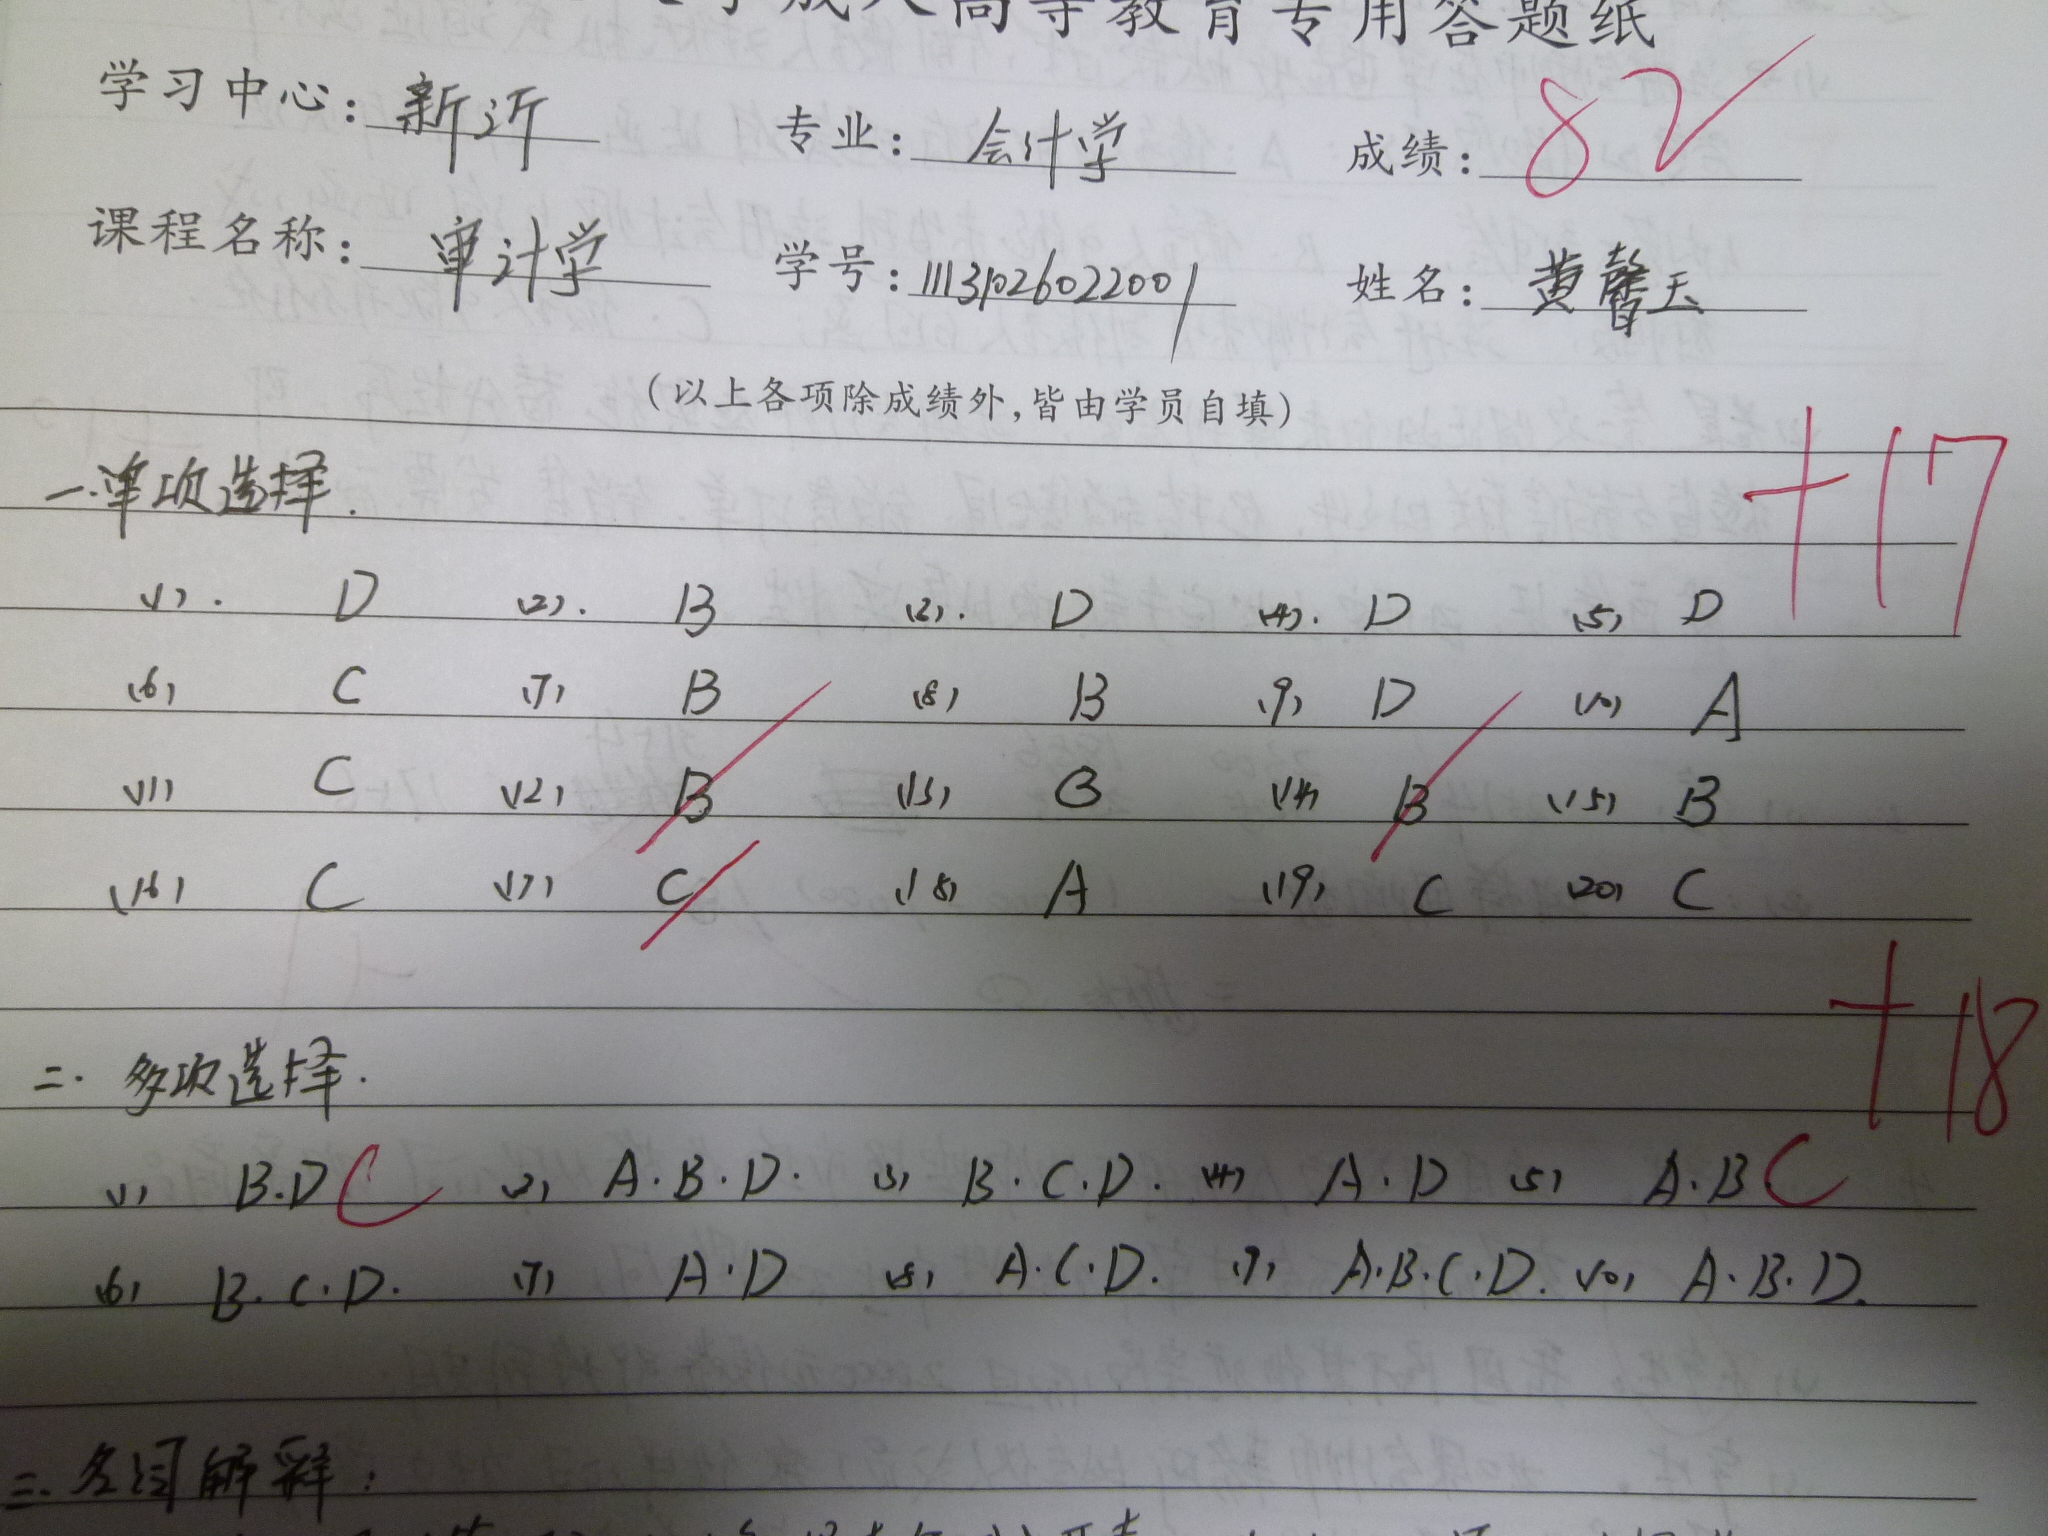 成人高等教育专用答题纸
学习中心: 新沂 专业: 会计学 成绩: 82
课程名称: 审计学 学号: 11131026022001 姓名: 黄馨天
(以上各项除成绩外,皆由学员自填)
一.单项选择. +17
(1). D (2). B (3). D (4). D (5) D
(6) C (7) B (8) B (9) D (10) A
(11) C (12) B (13) B (14) B (15) B
(16) C (17) C (18) A (19) C (20) C
+18
二. 多项选择.
(1) B.D C (2) A.B.D. (3) B.C.D. (4) A.D (5) A.B C
(6) B.C.D. (7) A.D (8) A.C.D. (9) A.B.C.D. (10) A.B.D.
三. 名词解释: